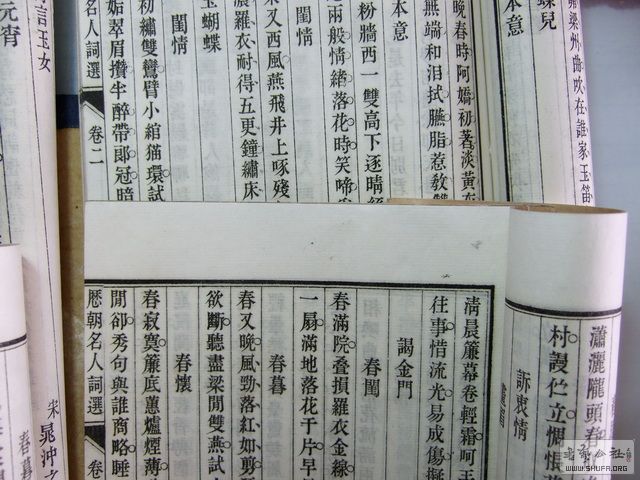 梁州曲吹在誰家玉笛
蝶兒
本意
晚春時阿嬌初著淡黃衣
無端和泪拭臙脂惹教雙
本意
粉牆西一雙高下逐晴絲
兩般情緒落花時笑啼
閨情
來又西風燕飛井上啄殘
濃羅衣耐得五更鐘繡床
玉蝴蝶
閨情
初繡雙鸞臂小綰猫環試
姤翠眉攢半醉帶郎冠暗
歷朝名人詞選
卷二
言玉女
元宵
瀟灑隴頭春
村謾伫立惆悵
訴衷情
清晨簾幕卷輕霜呵
往事惜流光易成傷
謁金門
春閨
春滿院疊損羅衣金線
一扇滿地落花千片早
春暮
春又晚風勁落紅如剪
欲斷聽盡梁間雙燕試
春懷
春寂寞簾底蕙爐煙薄
閒卻秀句與誰商略睡
歷朝名人詞選
卷
宋
晁沖之
春暮
書艺公社
WWW.SHUFA.ORG